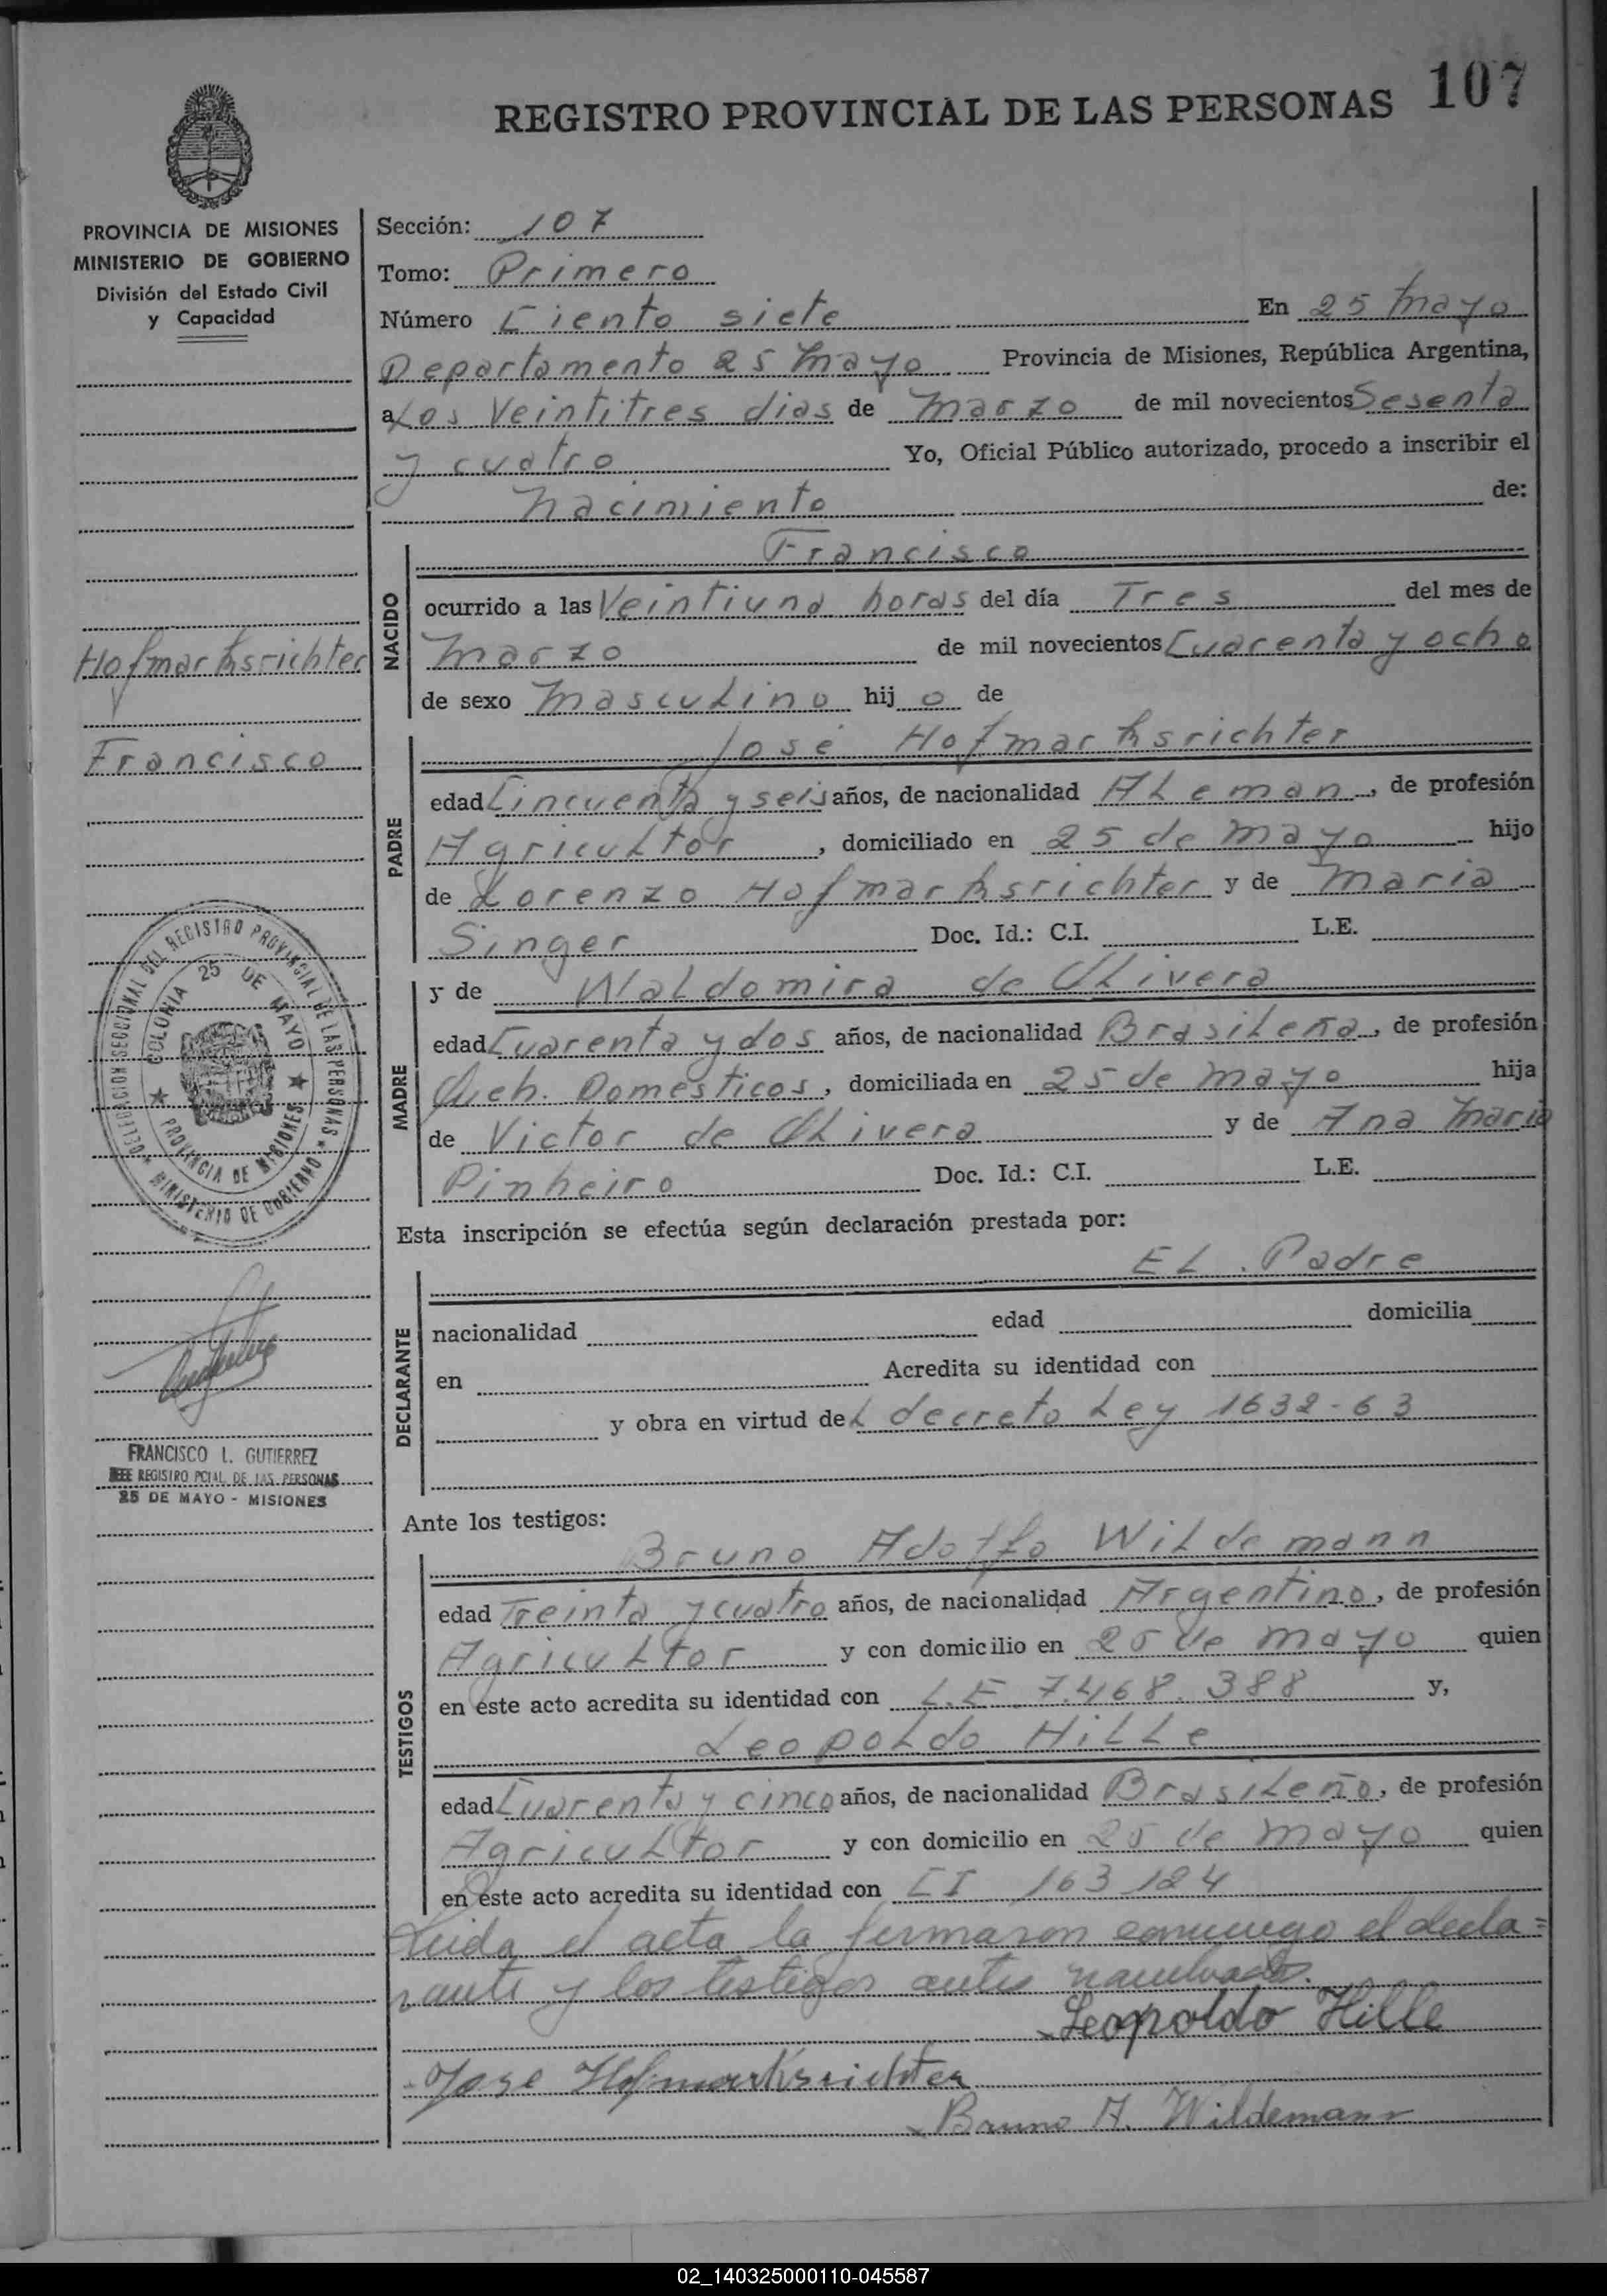 REGISTRO PROVINCIAL DE LAS PERSONAS 107
PROVINCIA DE MISIONES
MINISTERIO DE GOBIERNO
División del Estado Civil
y Capacidad
Hofmarksrichter
Francisco
DELEGACION SECCIONAL DEL REGISTRO PROVINCIAL DE LAS PERSONAS
★ MINISTERIO DE GOBIERNO ★
COLONIA 25 DE MAYO
★ PROVINCIA DE MISIONES ★
FRANCISCO I. GUTIERREZ
JEFE REGISTRO PCIAL. DE LAS PERSONAS
25 DE MAYO - MISIONES
Sección: 107
Tomo: Primero
Número Ciento siete En 25 Mayo
Departamento 25 Mayo Provincia de Misiones, República Argentina,
a Los Veintitres dias de Marzo de mil novecientos Sesenta
y cuatro Yo, Oficial Público autorizado, procedo a inscribir el
Nacimiento de:
NACIDO
Francisco
ocurrido a las Veintiuna horas del día Tres del mes de
Marzo de mil novecientos Cuarenta y ocho
de sexo Masculino hijo de
PADRE
José Hofmarksrichter
edad Cincuenta y seis años, de nacionalidad ALeman, de profesión
Agricultor, domiciliado en 25 de Mayo hijo
de Lorenzo Hofmarksrichter y de Maria
Singer Doc. Id.: C.I. L.E.
MADRE
y de Waldomira de Olivera
edad Cuarenta y dos años, de nacionalidad Brasileña, de profesión
Queh. Domésticos, domiciliada en 25 de Mayo hija
de Victor de Olivera y de Ana Maria
Pinheiro Doc. Id.: C.I. L.E.
Esta inscripción se efectúa según declaración prestada por:
DECLARANTE
EL Padre
nacionalidad edad domicilia
en Acredita su identidad con
y obra en virtud deL decreto Ley 1632-63
Ante los testigos:
TESTIGOS
Bruno Adolfo Wildemann
edad Treinta y cuatro años, de nacionalidad Argentino, de profesión
Agricultor y con domicilio en 25 de Mayo quien
en este acto acredita su identidad con L.E. 7.468.388 y,
Leopoldo Hille
edad Cuarenta y cinco años, de nacionalidad Brasileño, de profesión
Agricultor y con domicilio en 25 de Mayo quien
en este acto acredita su identidad con CI 163124
Leida el acta la firmaron conmigo el decla=
rante y los testigos antes nombrados.
Leopoldo Hille
Jose Hofmarksrichter
Bruno A. Wildemann
02_140325000110-045587